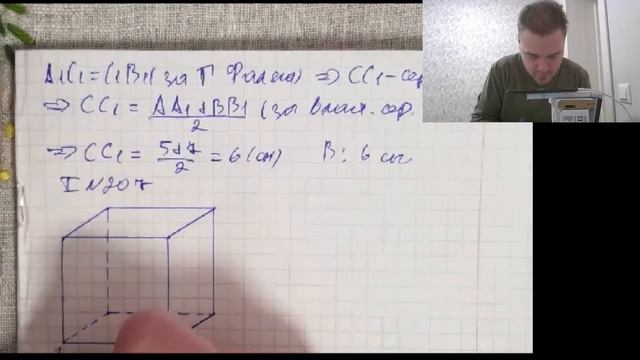 A₁C₁ = C₁B₁ (за Т Фалеса) ⇒ CC₁ - сер
⇒ CC₁ = (AA₁ + BB₁)/2 (за власт. сер.
⇒ CC₁ = (5+7)/2 = 6 (см) В: 6 см
N207